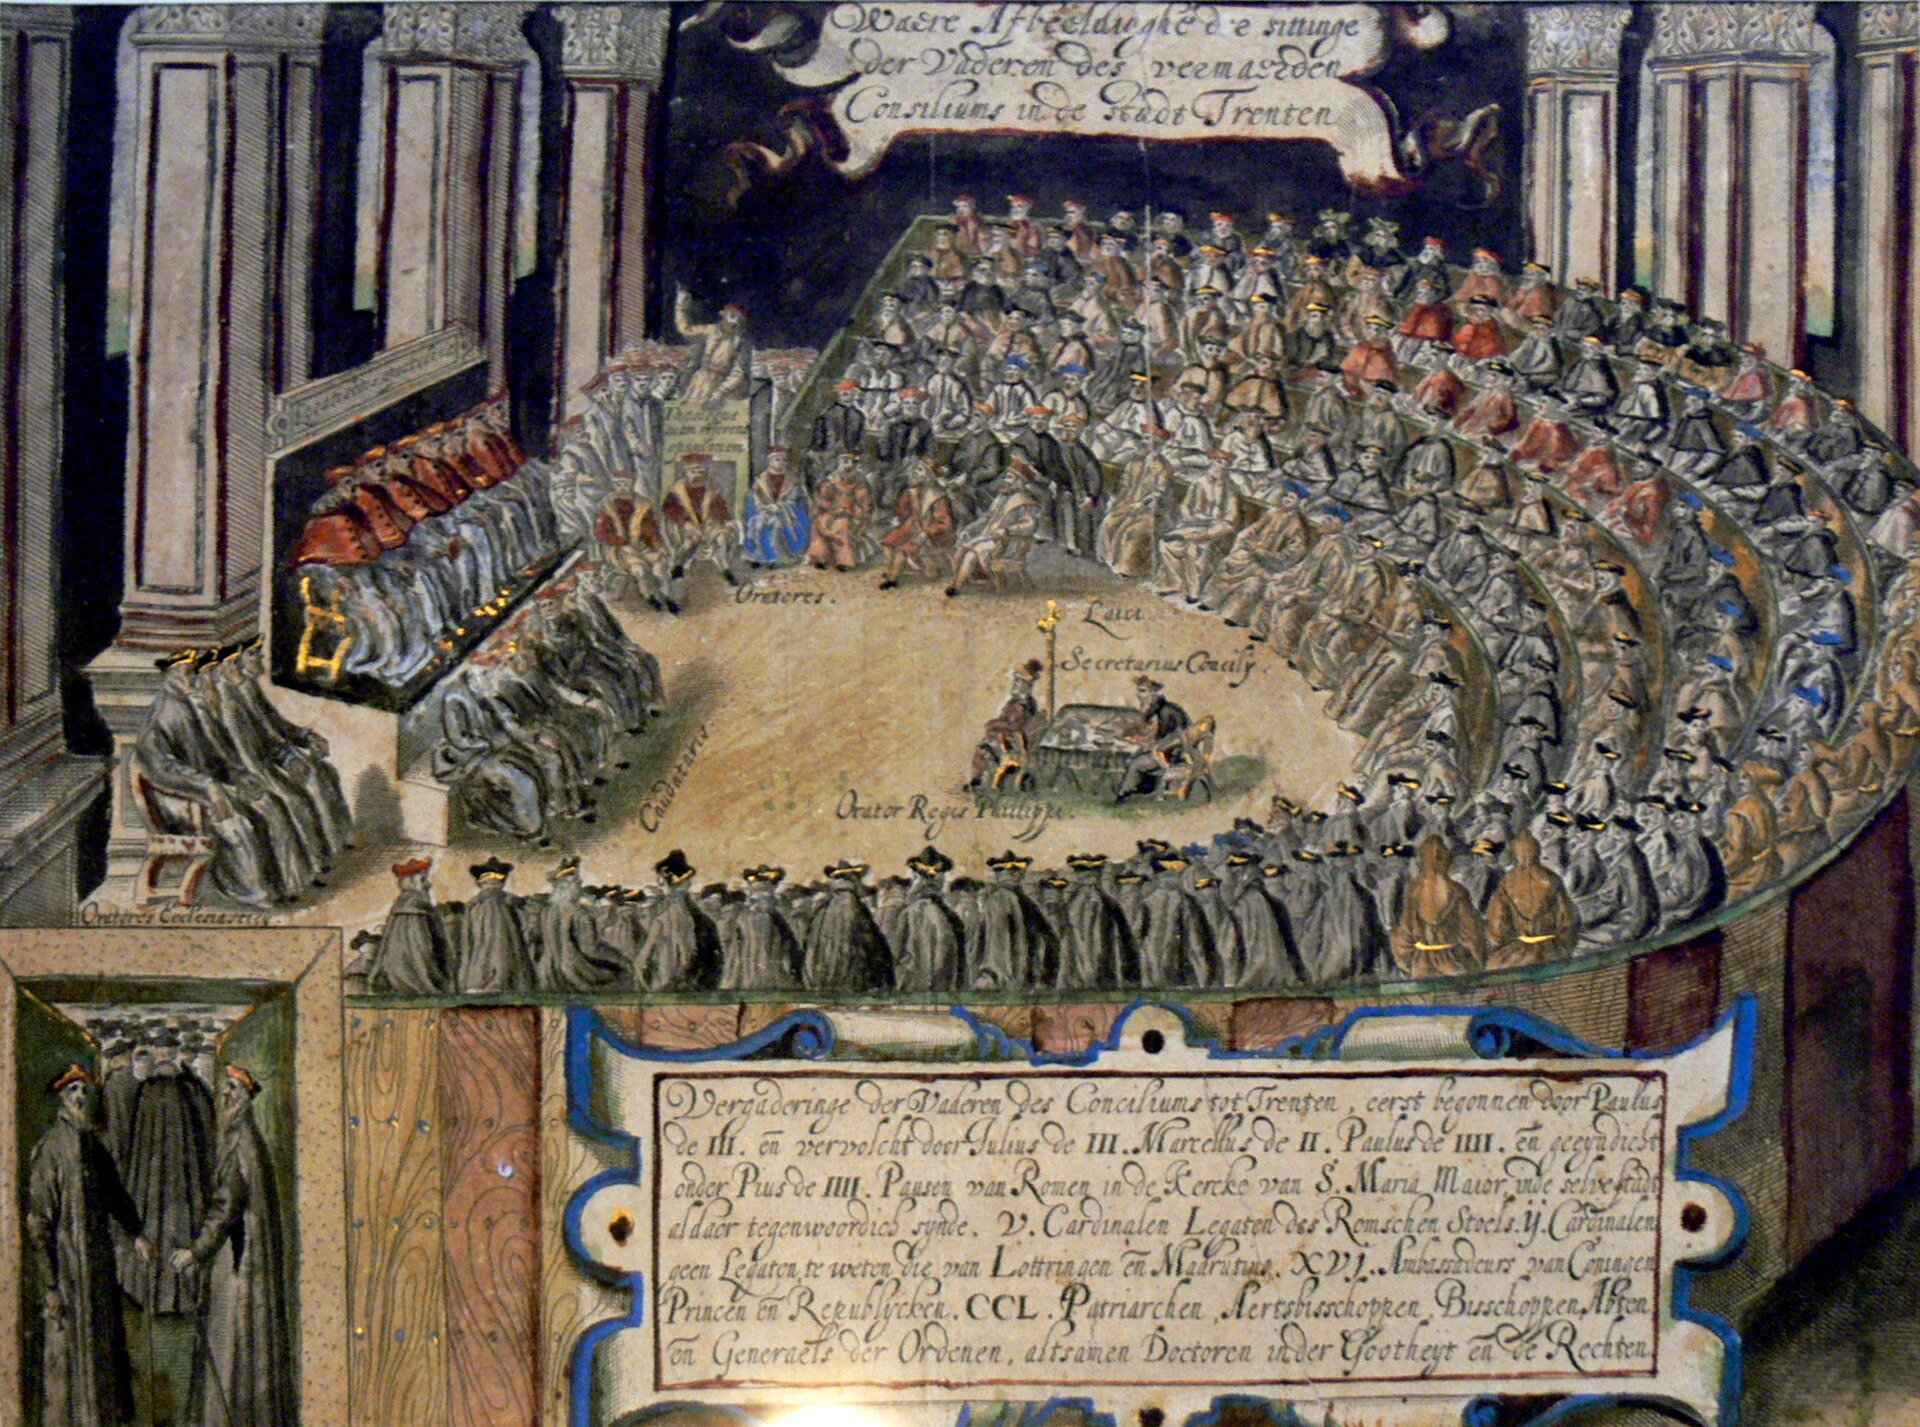 Waere Afbeeldinghe de sittinge
der Vaderen des vermaerden
Consiliums in de Stadt Trenten
Oratores.
Laici.
Secretarius Concily.
Caudataris
Orator Regis Philippi.
Oratores Ecclesiastici.
Vergaderinge der Vaderen des Conciliums tot Trenten, eerst begonnen door Paulus
de III. en̄ vervolcht door Julius de III. Marcellus de II. Paulus de IIII. en̄ geeyndicht
onder Pius de IIII. Pausen van Romen in de Kercke van S. Maria Maior inde selve stadt
aldaer tegenwoordich synde. V. Cardinalen Legaten des Romschen Stoels. ij. Cardinalen
geen Legaten, te weten die van Lottringen en̄ Madrutius. XVJ. Ambassadeurs van Coningen
Princen en̄ Republycken. CCL. Patriarchen, Aertsbisschoppen, Bisschoppen, Abten,
en̄ Generaels der Ordenen, altsamen Doctoren in der Gootheyt en̄ de Rechten.